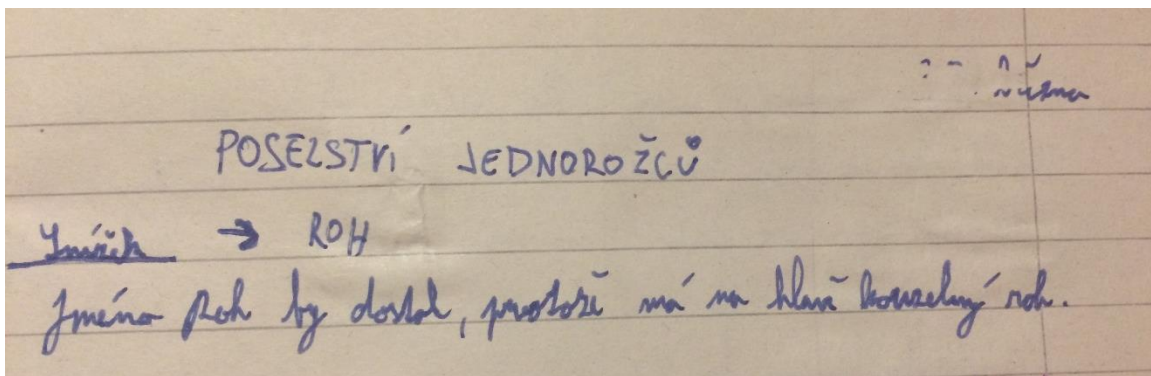 POSELSTVÍ JEDNOROŽCŮ
→ ROH
Jméno Roh by dostal, protože má na hlavě kouzelný roh.